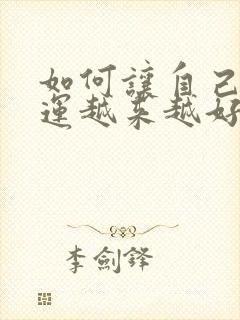 如何讓自己
運越来越好
李劍鋒